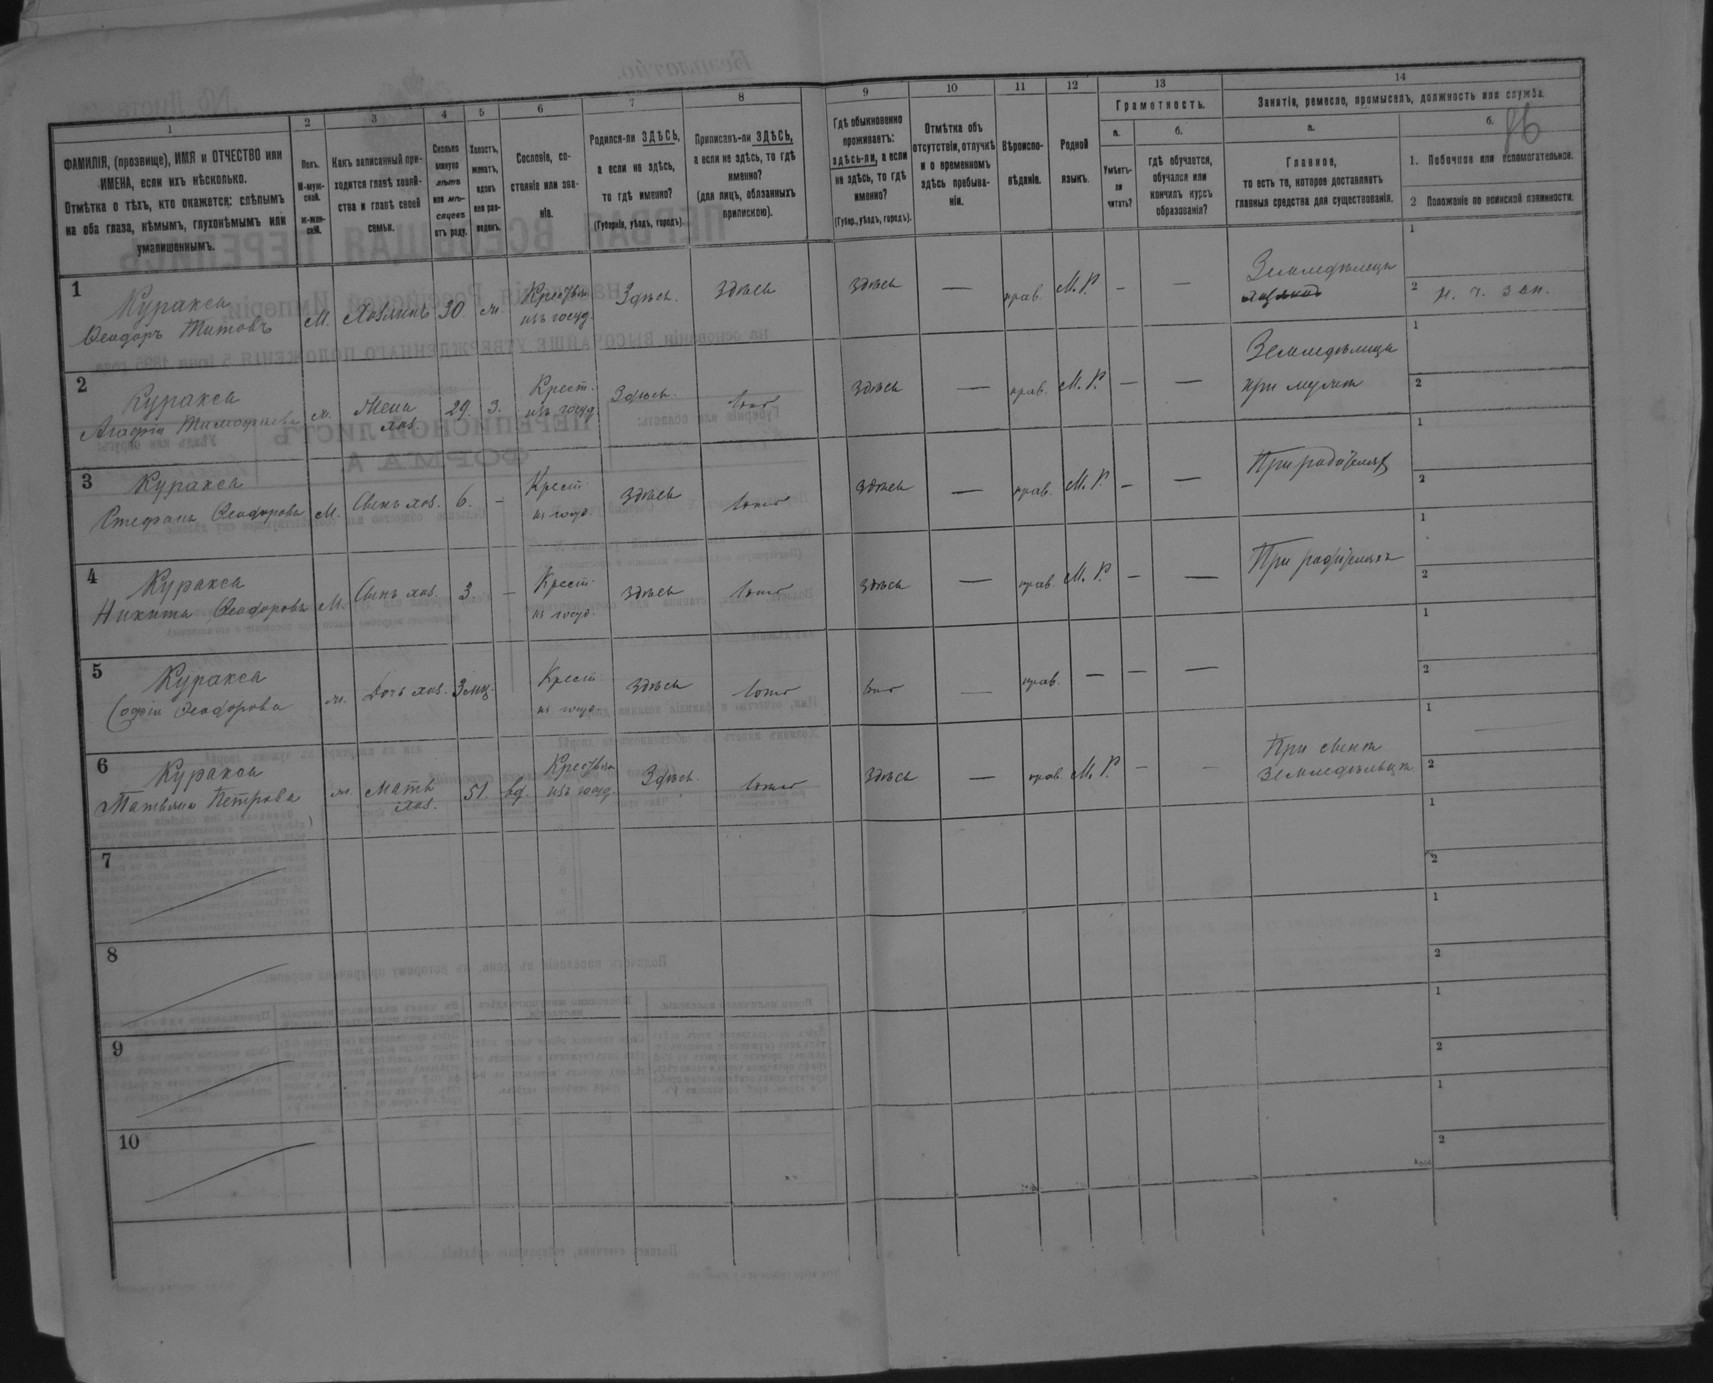 1 2 3 4 5 6 7 8 9 10 11 12 13 14
ФАМИЛІЯ, (прозвище), ИМЯ и ОТЧЕСТВО или
ИМЕНА, если ихъ нѣсколько.
Отмѣтка о тѣхъ, кто окажется: слѣпымъ
на оба глаза, нѣмымъ, глухонѣмымъ или
умалишеннымъ.
Полъ.
М-муж-
ской.
Ж-жен-
скій.
Какъ записанный при-
ходится главѣ хозяй-
ства и главѣ своей
семьи.
Сколько
минуло
лѣтъ
или мѣ-
сяцевъ
отъ роду.
Холостъ,
женатъ,
вдовъ
или раз-
веденъ.
Сословіе, со-
стояніе или зва-
ніе.
Родился-ли ЗДѢСЬ,
а если не здѣсь,
то гдѣ именно?
(Губернія, уѣздъ, городъ).
Приписанъ-ли ЗДѢСЬ,
а если не здѣсь, то гдѣ
именно?
(для лицъ, обязанныхъ
припискою).
Гдѣ обыкновенно
проживаетъ:
здѣсь-ли, а если
не здѣсь, то гдѣ
именно?
(Губер., уѣздъ, городъ).
Отмѣтка объ
отсутствіи, отлучкѣ
и о временномъ
здѣсь пребыва-
ніи.
Вѣроиспо-
вѣданіе.
Родной
языкъ.
Грамотность.
а.
Умѣетъ-
ли
читать?
б.
гдѣ обучается,
обучался или
кончилъ курсъ
образованія?
Занятіе, ремесло, промыселъ, должность или служба.
а.
Главное,
то есть то, которое доставляетъ
главныя средства для существованія.
б.
1. Побочное или вспомогательное.
2 Положеніе по воинской повинности.
1 Куракса
Ѳеодоръ Титовъ М. Хозяинъ 30. ж. Крестьян. изъ госуд. Здѣсь. Здѣсь Здѣсь — прав. М. Р. — — Земледѣлецъ
1
2
2 Куракса
Агафія Тимофѣева ж. Жена хоз. 29. З. Крест. изъ госуд. Здѣсь. тоже Здѣсь — прав. М. Р. — — Земледѣлица
при мужѣ
1
2
3 Куракса
Стефанъ Ѳеодоровъ М. Сынъ хоз. 6. — Крест. из госуд. Здѣсь тоже Здѣсь — прав. М. Р. — — При родителях
1
2
4 Куракса
Никита Ѳеодоровъ М. Сынъ хоз. 3. — Крест. из госуд. Здѣсь тоже Здѣсь — прав. М. Р. — — При родителях
1
2
5 Куракса
Софія Ѳеодорова ж. Дочь хоз. 3 мц. Крест. из госуд. Здѣсь тоже тоже — прав. — — —
1
2
6 Куракса
Татьяна Петрова ж. Мать хоз. 51. вд. Крестьян. изъ госуд. Здѣсь. тоже Здѣсь — прав. М. Р. — — При сынѣ
земледѣльцѣ
1
2
7
1
2
8
1
2
9
1
2
10
1
2